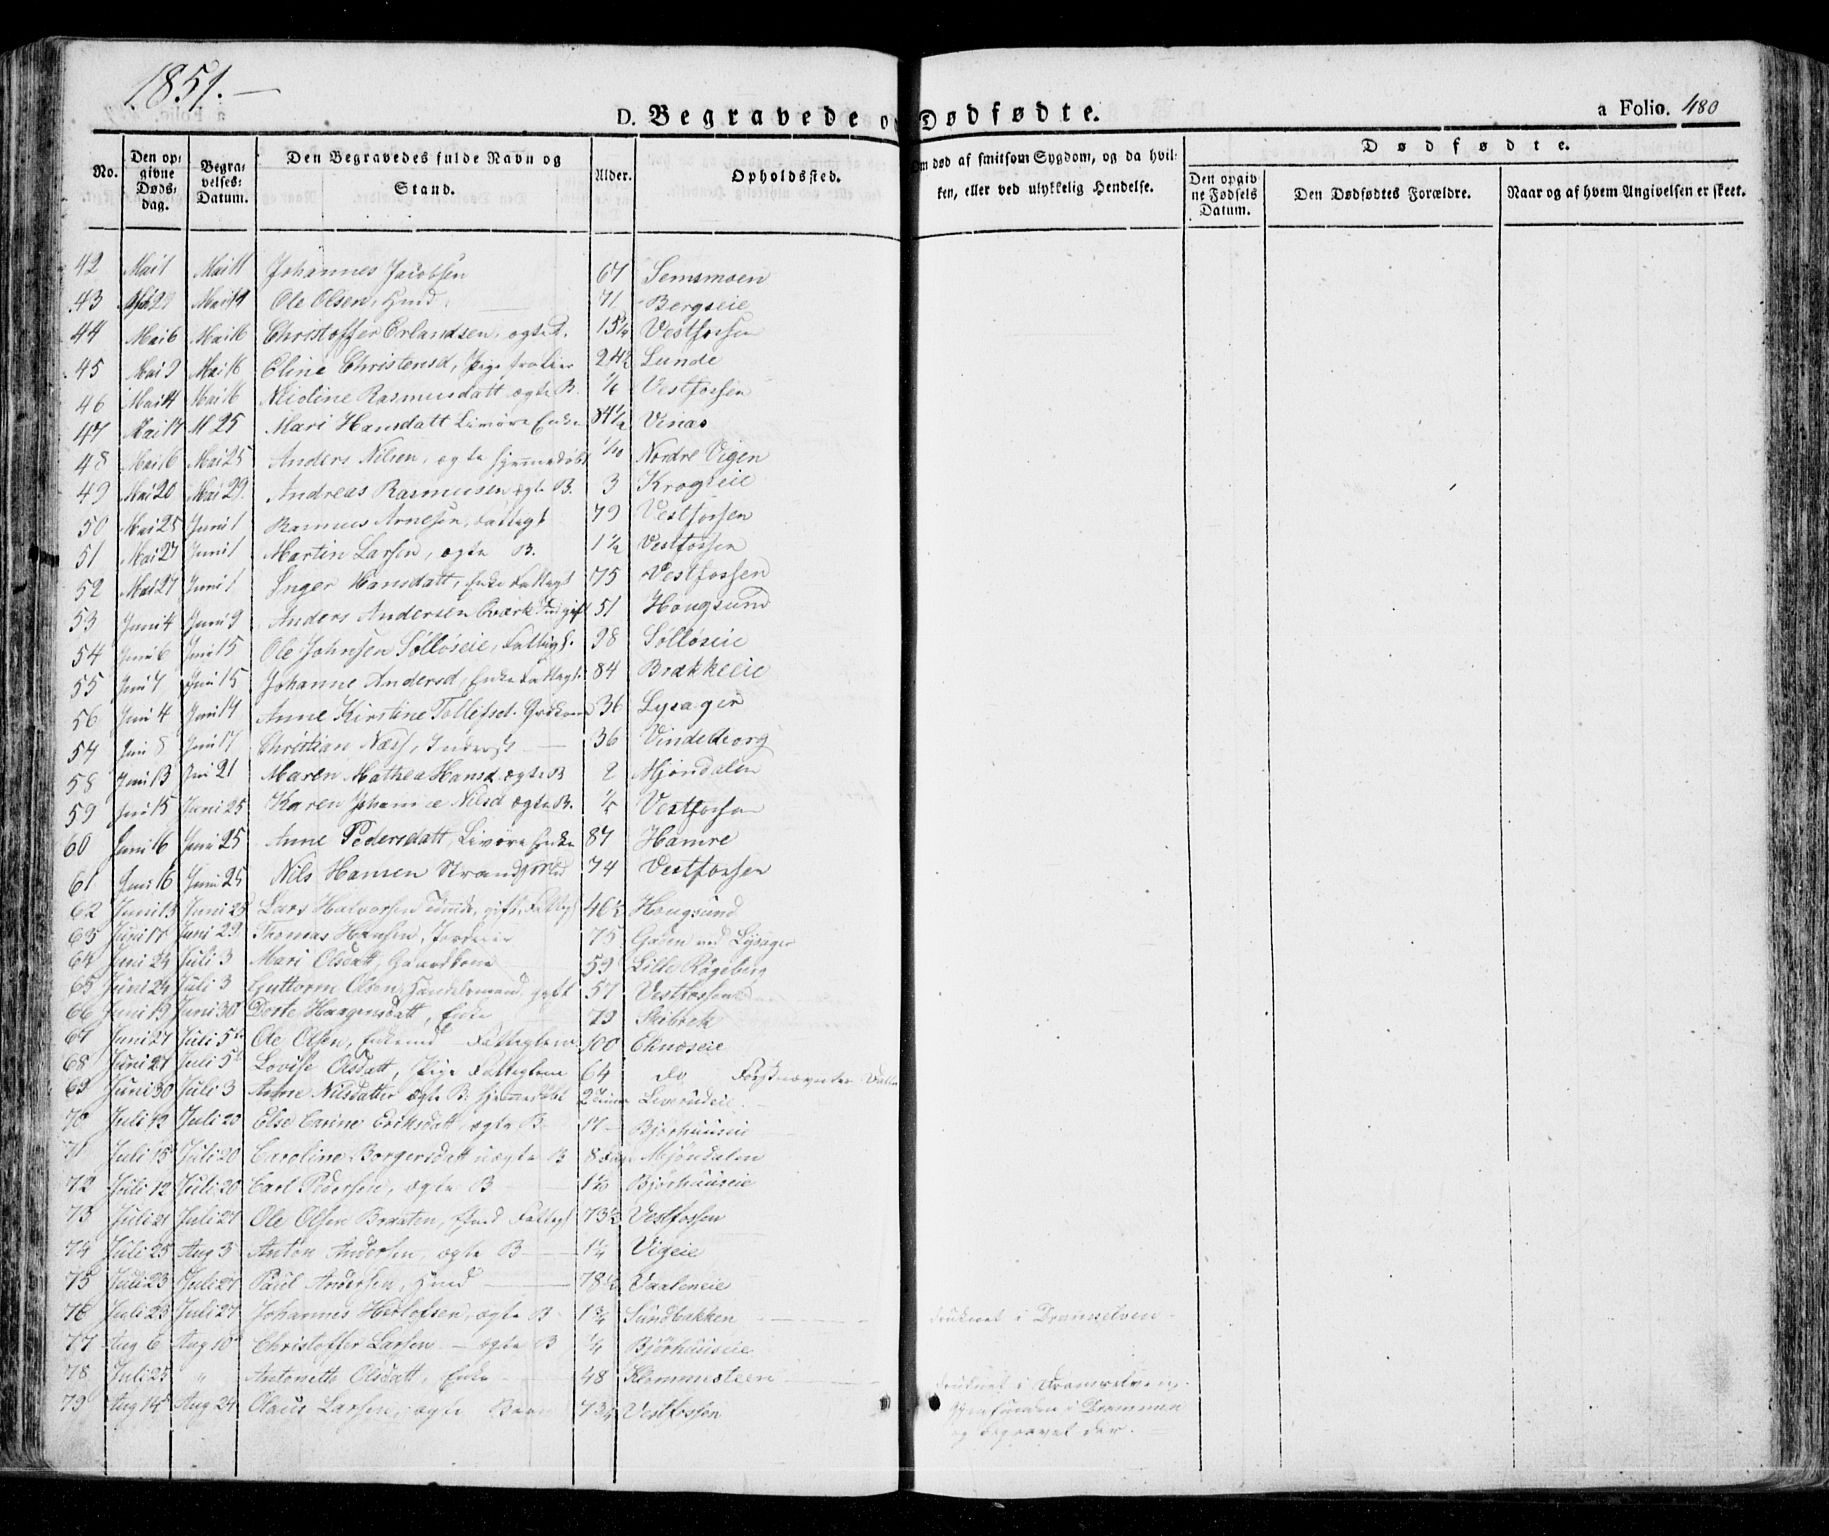 1851.
D. Begravede o Dødfødte.
a Folio. 480
No.
Den opgivne Døds-dag.
Begravelses-Datum.
Den Begravedes fulde Navn og Stand.
Alder.
Opholdssted.
Om død af smitsom Sygdom, og da hvilken, eller ved ulykkelig Hendelse.
Dødfødte.
Den opgivne Fødsels Datum.
Den Dødfødtes Forældre.
Naar og af hvem Angivelsen er skeet.
42 Mai 1 Mai 11 Johannes Jacobsen 67 Semsmoen
43 Mai Ole Olsen, 71 Bergseie
44 Mai 6 Mai 16 Christoffer Erlandsen, ægte Vestfossen
45 Mai 9 Mai 16 Eline Christensd, Pige fra Lier 24½ Lunde
46 Mai 14 Mai 16 Rasmusdatt ægte B. Vestfossen
47 Mai 17 M 25 Mari Hansdatt Livøre Enke 84½ Vinæs
48 Mai 16 Mai 25 Anders Nilsen, ægte hjemmedøbt 1/10 Nordre Vigen
49 Mai 20 Mai 29 Andreas Rasmusen ægte B. 3 Krogseie
50 Mai 25 Juni 1 Rasmus Arnesen, Fattigl 79 Vestfossen
51 Mai 27 Juni 1 Martin Larsen, ægte B. 1½ Vestfossen
52 Mai 27 Juni 1 Inger Hansdatt, Enke Fattigl 75 Vestfossen
53 Juni 4 Juni 9 Anders Andersen 51 Hougsund
54 Juni 6 Juni 15 Ole Johnsen Sølløseie, Fattigl. 98 Sølløseie
55 Juni 7 Juni 15 Johanne Andersd, Enke Fattigl. 84 Brækkeeie
56 Juni 4 Juni 14 Anne Kirstine Tollefsd. 36 Lysager
57 Juni 8 Juni 17 Christian Næss, Inderst 36
58 Juni 13 Juni 21 Maren Mathea Hansd. ægte B 2 Mjøndalen
59 Juni 15 Juni 25 Karen Nilsd ægte B. Vestfossen
60 Juni 16 Juni 25 Anne Pedersdatt, Livøre Enke 87 Hamre
61 Juni 16 Juni 25 Nils Hansen 74 Vestfossen
62 Juni 13 Juni 23 Lars Halvorsen gift, Fattigl 46½ Hougsund
63 Juni 17 Juni 29 Thomas Hansen, 75 Gaden ved Lysager
64 Juni 24 Juli 3 Mari Olsdatt, Gaardkone 59 Lille Røgeberg
65 Juni 24 Juli 3 Guttorm Olsen, Handelsmand, gift 57 Vestfossen
66 Juni 19 Juni 30 Dorte Haagensdatt, Enke 79 Skibbek
67 Juni 27 Juli 5 Ole Olsen, Enkemd Fattiglem 100 Eknæseie
68 Juni 27 Juli 5 Lovise Olsdatt, Pige Fattiglem 64 do Førstnævntes Datter
69 Juni 30 Juli 3 Anne Nilsdatter ægte B. hjemmedøbt 2 Timer
70 Juli 12 Juli 20 Else Carine Eriksdatt, ægte B Bjørhuuseie
71 Juli 15 Juli 20 Caroline Borgersdatt uægte B 8 Dage Mjøndalen
72 Juli 12 Juli 20 Carl Pedersen, ægte B Bjørhuuseie
73 Juli 21 Juli 27 Ole Olsen Braaten, Fattigl 73½ Vestfossen
74 Juli 25 Aug 3 Anton Andersen, ægte B 1¼ Vigeie
75 Juli 23 Juli 27 Paul Andersen, 78½
76 Juli 23 Juli 27 Johannes Herlofsen, ægte B 1¾ Sundbakken druknet i Dramselven
77 Aug 6 Aug 10 Christoffer Larsen — ægte B ¼ Bjørhuuseie
78 Juli 25 " Antonette Olsdatt, Enke 48 Klommesteen druknet i Dramselven,
igjenfunden i Drammen
og begravet der.
79 Aug 14 Aug 24 Olaus Larsen, ægte Barn Vestfossen